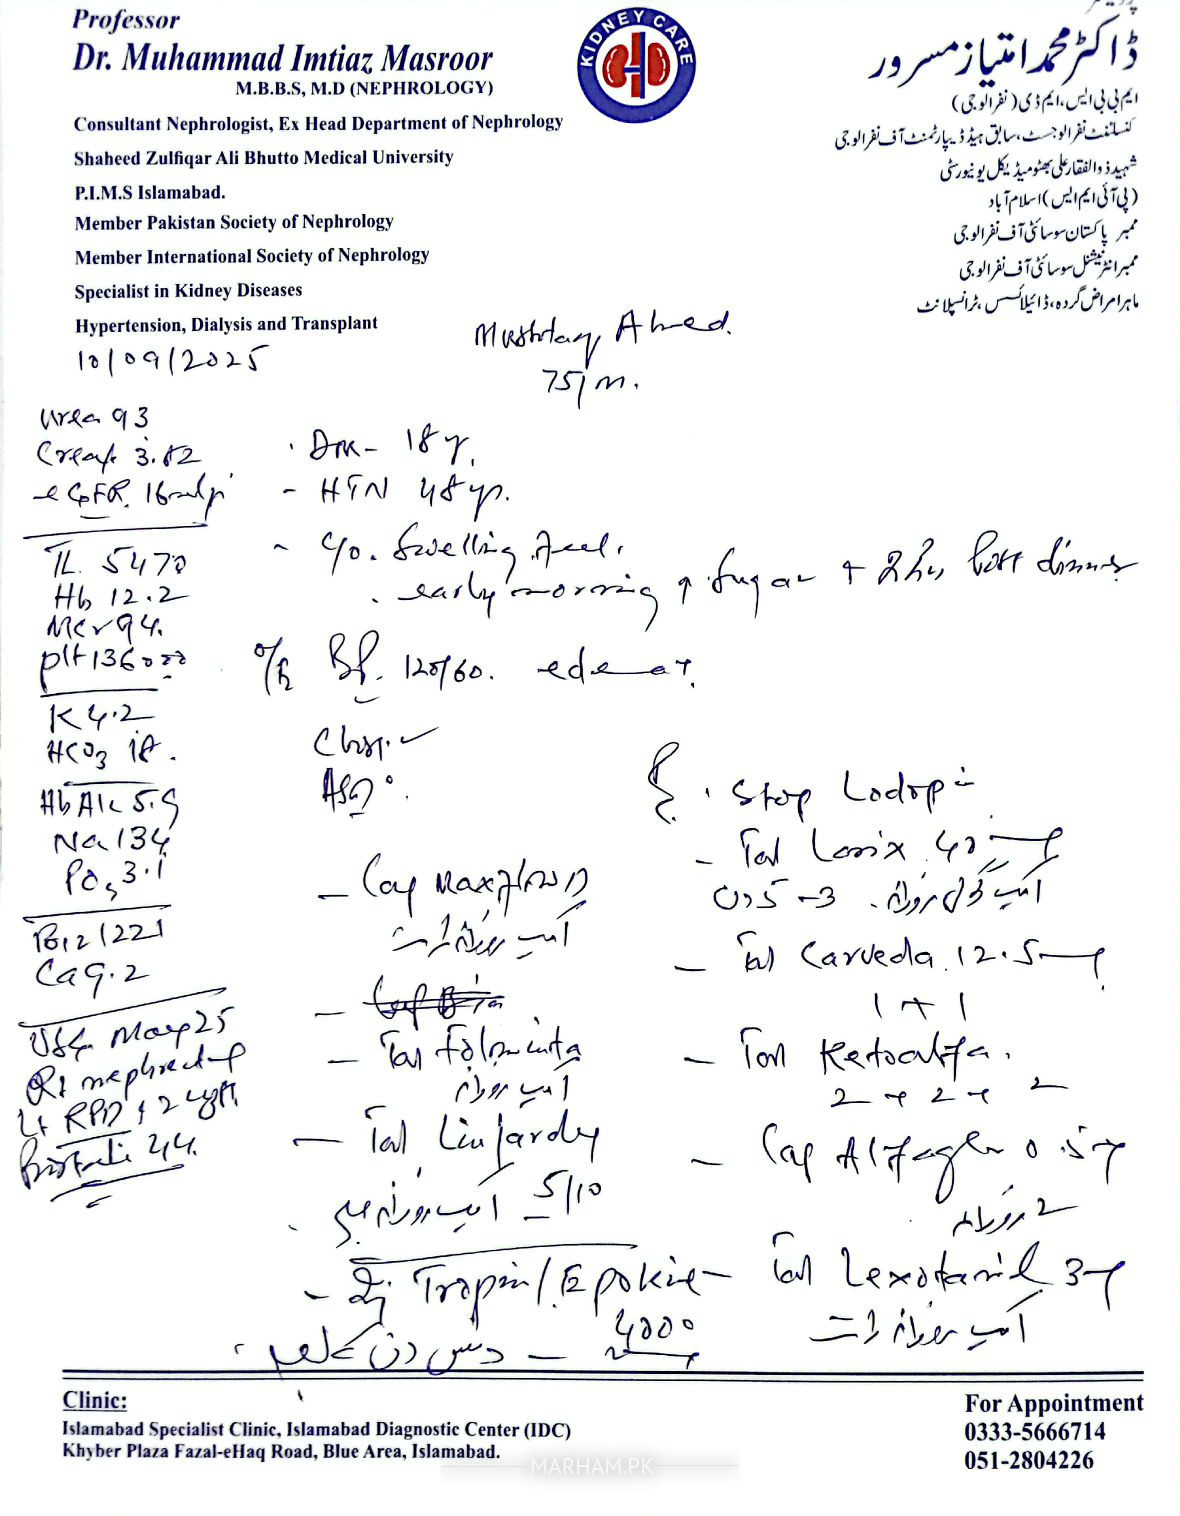 Professor
Dr. Muhammad Imtiaz Masroor
M.B.B.S, M.D (NEPHROLOGY)
Consultant Nephrologist, Ex Head Department of Nephrology
Shaheed Zulfiqar Ali Bhutto Medical University
P.I.M.S Islamabad.
Member Pakistan Society of Nephrology
Member International Society of Nephrology
Specialist in Kidney Diseases
Hypertension, Dialysis and Transplant
KIDNEY CARE
ڈاکٹر محمد امتیاز مسرور
ایم بی بی ایس، ایم ڈی (نفرالوجی)
کنسلٹنٹ نفرالوجسٹ، سابق ہیڈ ڈیپارٹمنٹ آف نفرالوجی
شہید ذوالفقار علی بھٹو میڈیکل یونیورسٹی
(پی آئی ایم ایس) اسلام آباد
ممبر پاکستان سوسائٹی آف نفرالوجی
ممبر انٹرنیشنل سوسائٹی آف نفرالوجی
ماہر امراض گردہ، ڈائیلائسس، ٹرانسپلانٹ
10/09/2025
Mushtaq Ahmed.
75/m.
Urea 93
Creat 3.82
eGFR. 16
TL. 5470
Hb 12.2
MCV 94.
plt 136000
K 4.2
HCO3 18.
HbA1c 5.9
Na 134
PO4 3.1
B12 1221
Ca 9.2
USG. May 25
Rt nephrectomy
Lt RPD + 2 cyst.
Prostate 44.
DM - 18 y.
- HTN 48 yr.
- c/o. Swelling feet.
early morning ↑ Sugar + 2 hr post dinner
O/E BP. 120/60. edema +.
Chest. ✓
- Cap Maxflow D
ایک روزانہ رات
- Tab Folominta
ایک روزانہ
- Tab Linjardy
5/10 ایک روزانہ صبح
- Inj Tropin / Epokine
4000 - دس دن بعد
. Stop Lodopin
- Tab Lasix 40 mg
ایک گولی روزانہ. 3-5 دن
- Tab Carveda 12.5 mg
1 + 1
- Tab Ketoalfa.
2 + 2 + 2
- Cap Alfagler 0.5
2 روزانہ
- Tab Lexotanil 3 mg
ایک روزانہ رات
Clinic:
Islamabad Specialist Clinic, Islamabad Diagnostic Center (IDC)
Khyber Plaza Fazal-eHaq Road, Blue Area, Islamabad.
For Appointment
0333-5666714
051-2804226
MARHAM.PK